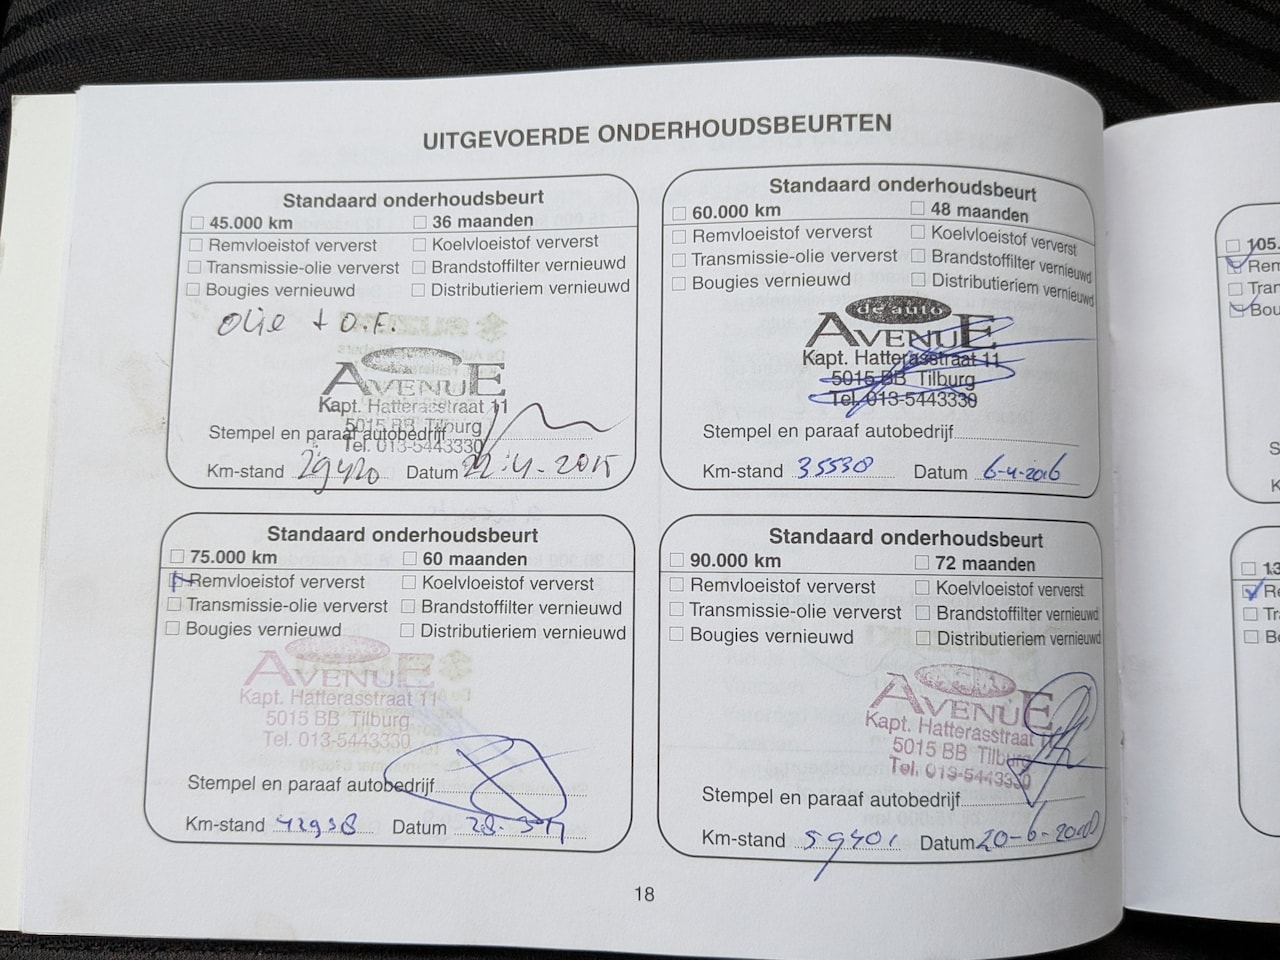 UITGEVOERDE ONDERHOUDSBEURTEN
Standaard onderhoudsbeurt
45.000 km 36 maanden
Remvloeistof ververst Koelvloeistof ververst
Transmissie-olie ververst Brandstoffilter vernieuwd
Bougies vernieuwd Distributieriem vernieuwd
olie + O.F.
AVENUE
Kapt. Hatterasstraat 11
5015 BB Tilburg
Stempel en paraaf autobedrijf
Tel. 013-5443330
Km-stand 29420 Datum 22-4-2015
Standaard onderhoudsbeurt
60.000 km 48 maanden
Remvloeistof ververst Koelvloeistof ververst
Transmissie-olie ververst Brandstoffilter vernieuwd
Bougies vernieuwd Distributieriem vernieuwd
de auto
AVENUE
Kapt. Hatterasstraat 11
5015 BB Tilburg
Tel. 013-5443330
Stempel en paraaf autobedrijf
Km-stand 35530 Datum 6-4-2016
Standaard onderhoudsbeurt
75.000 km 60 maanden
Remvloeistof ververst Koelvloeistof ververst
Transmissie-olie ververst Brandstoffilter vernieuwd
Bougies vernieuwd Distributieriem vernieuwd
AVENUE
Kapt. Hatterasstraat 11
5015 BB Tilburg
Tel. 013-5443330
Stempel en paraaf autobedrijf
Km-stand 42938 Datum
Standaard onderhoudsbeurt
90.000 km 72 maanden
Remvloeistof ververst Koelvloeistof ververst
Transmissie-olie ververst Brandstoffilter vernieuwd
Bougies vernieuwd Distributieriem vernieuwd
AVENUE
Kapt. Hatterasstraat 11
5015 BB Tilburg
Tel. 013-5443330
Stempel en paraaf autobedrijf
Km-stand 59401 Datum
18
105.
Rem
Tran
Bou
S
K
13
Re
Tr
Bo